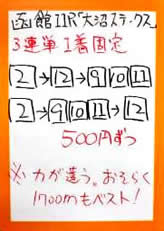 函館11R「大沼ステークス」
3連単 1着固定
2→12→9 10 11
2→9 10 11→12
500円ずつ
※力が違う。おそらく
1700mもベスト!